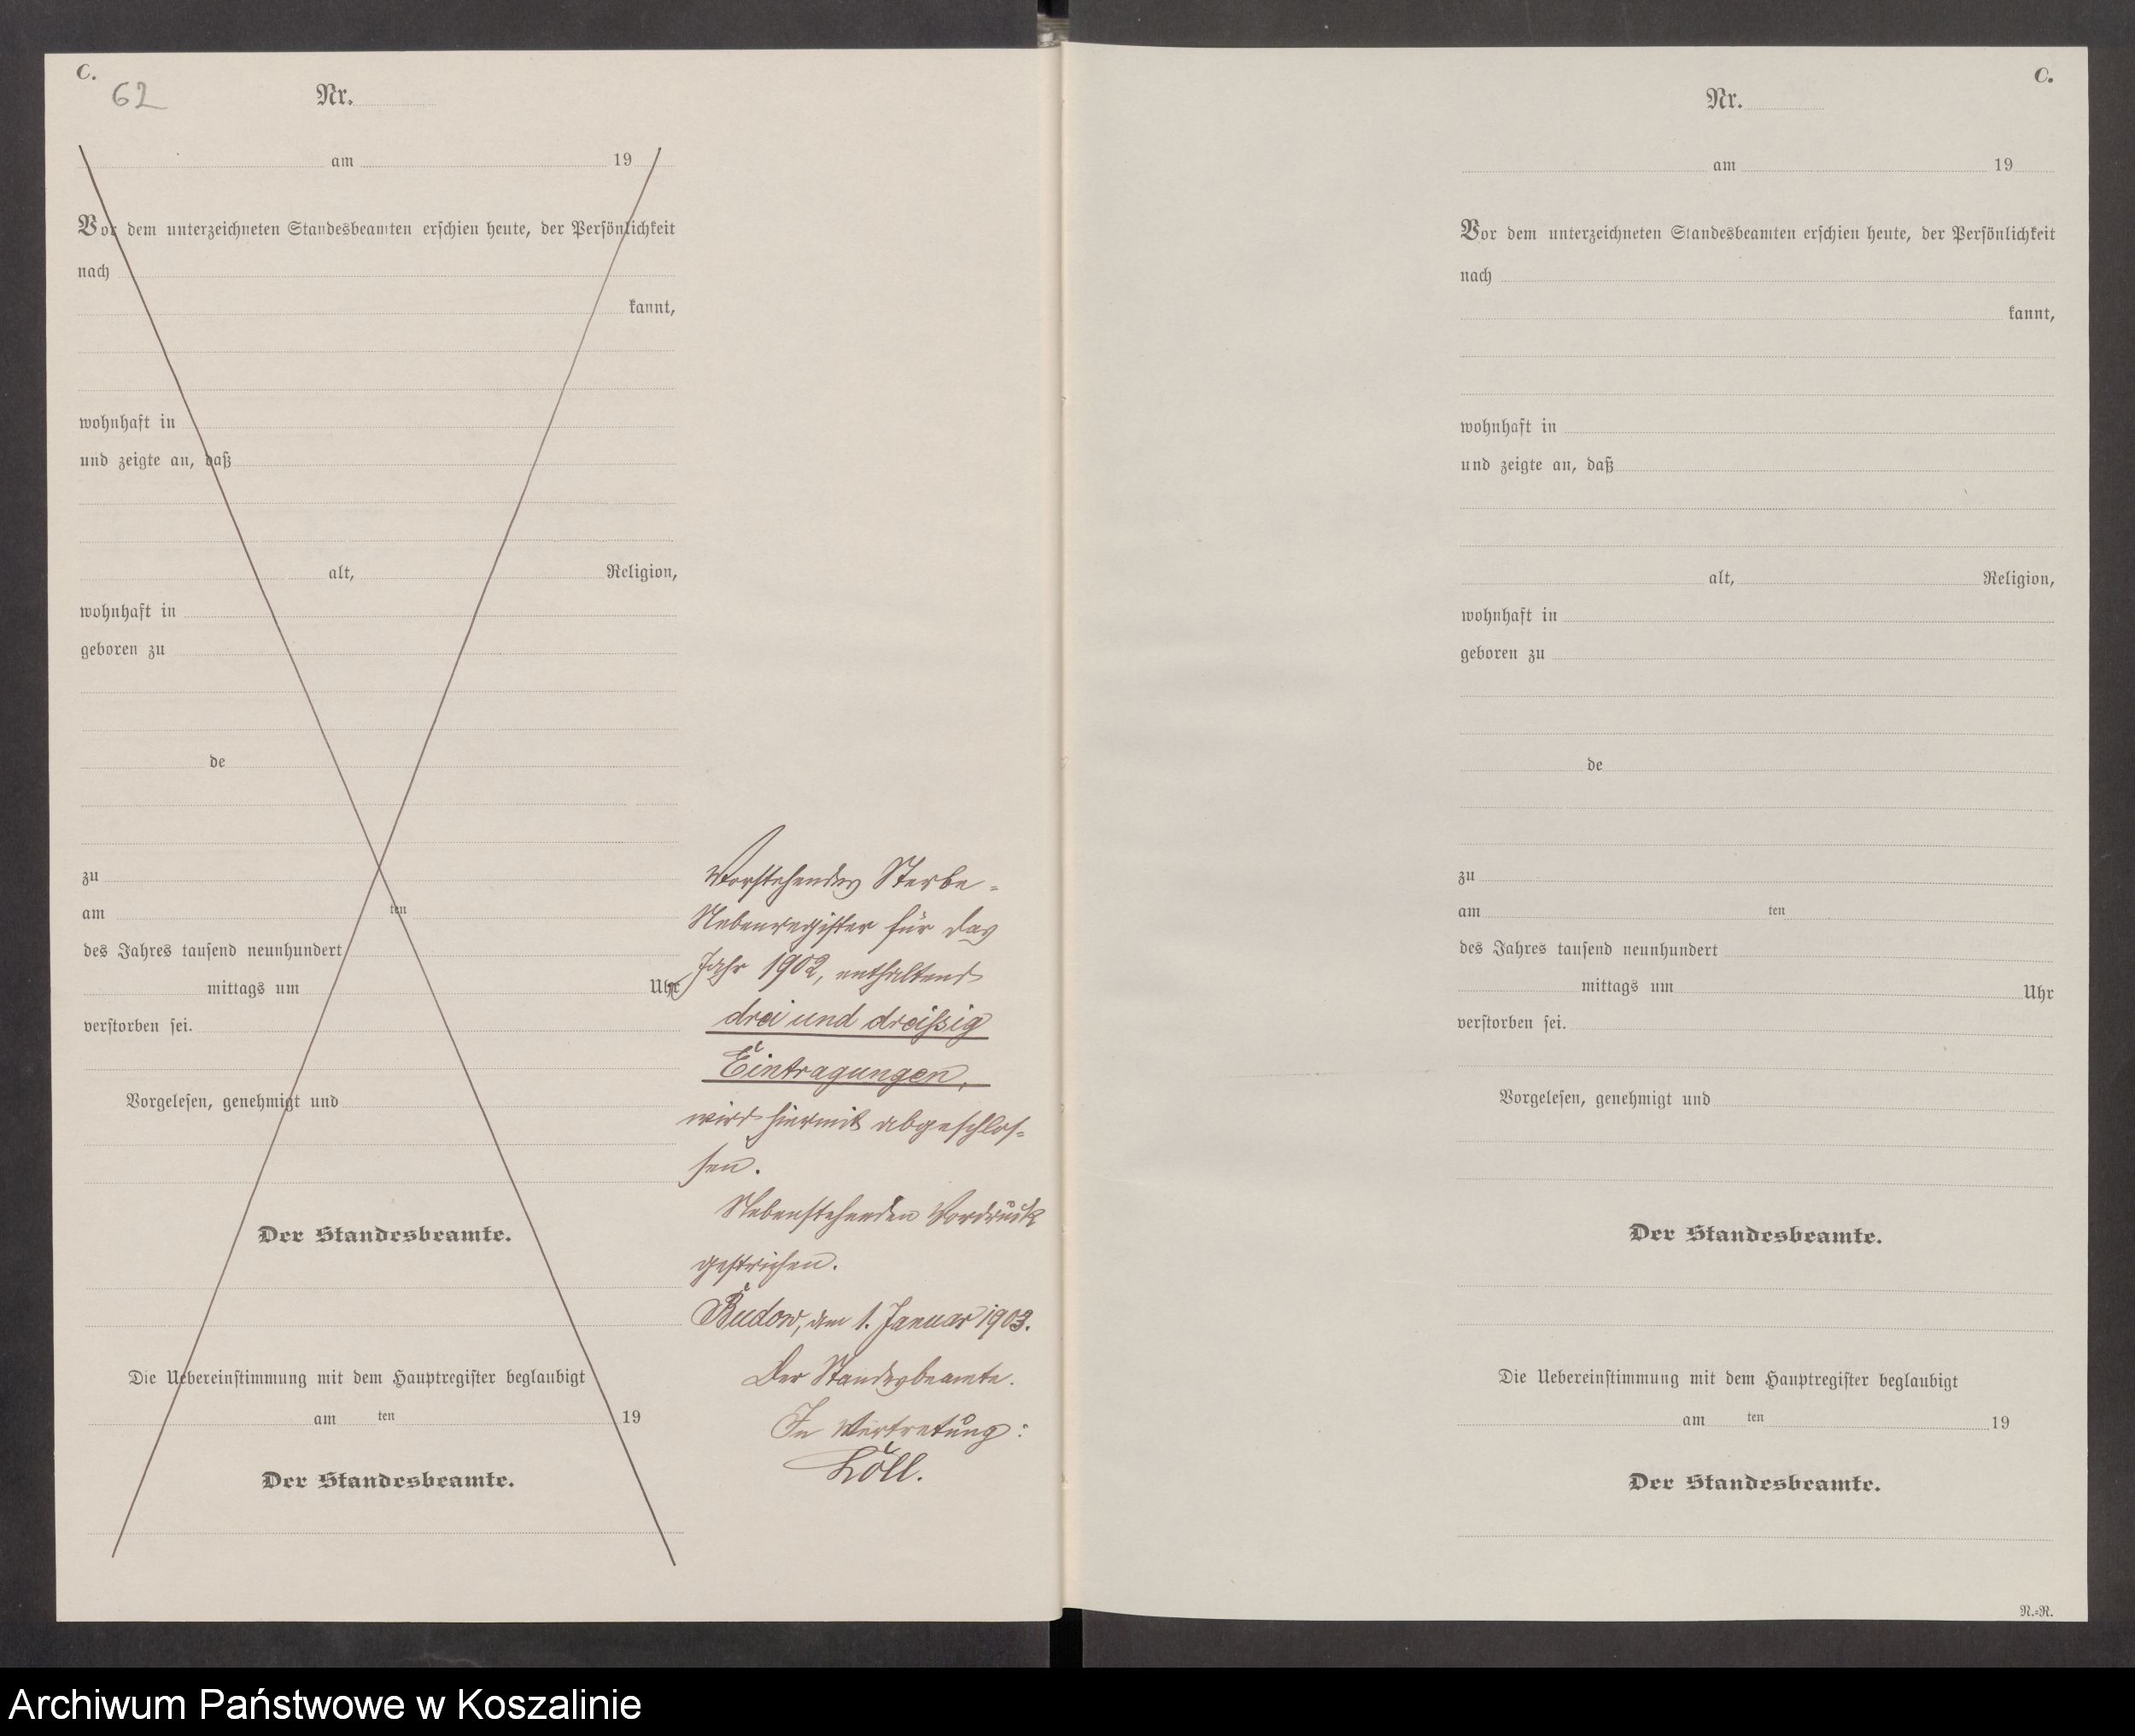 C.
62
Nr.
am 19
Vor dem unterzeichneten Standesbeamten erschien heute, der Persönlichkeit
nach
kannt,
wohnhaft in
und zeigte an, daß
alt, Religion,
wohnhaft in
geboren zu
de
zu
am ten
des Jahres tausend neunhundert
mittags um Uhr
verstorben sei.
Vorgelesen, genehmigt und
Der Standesbeamte.
Die Uebereinstimmung mit dem Hauptregister beglaubigt
am ten 19
Der Standesbeamte.
Vorstehendes Sterbe-
Nebenregister für das
Jahr 1902, enthaltend
drei und dreißig
Eintragungen,
wird hiermit abgeschlos-
sen.
Nebenstehenden Vordruck
gestrichen.
Budow, den 1. Januar 1903.
Der Standesbeamte.
In Vertretung:
Löll.
C.
Nr.
am 19
Vor dem unterzeichneten Standesbeamten erschien heute, der Persönlichkeit
nach
kannt,
wohnhaft in
und zeigte an, daß
alt, Religion,
wohnhaft in
geboren zu
de
zu
am ten
des Jahres tausend neunhundert
mittags um Uhr
verstorben sei.
Vorgelesen, genehmigt und
Der Standesbeamte.
Die Uebereinstimmung mit dem Hauptregister beglaubigt
am ten 19
Der Standesbeamte.
N.-R.
Archiwum Państwowe w Koszalinie